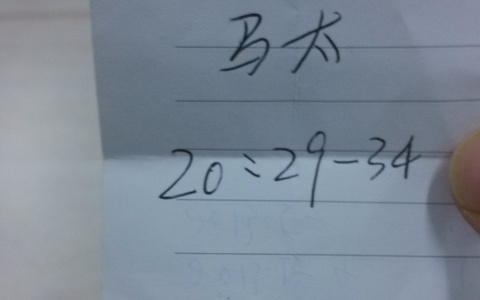 马太
20:29-34